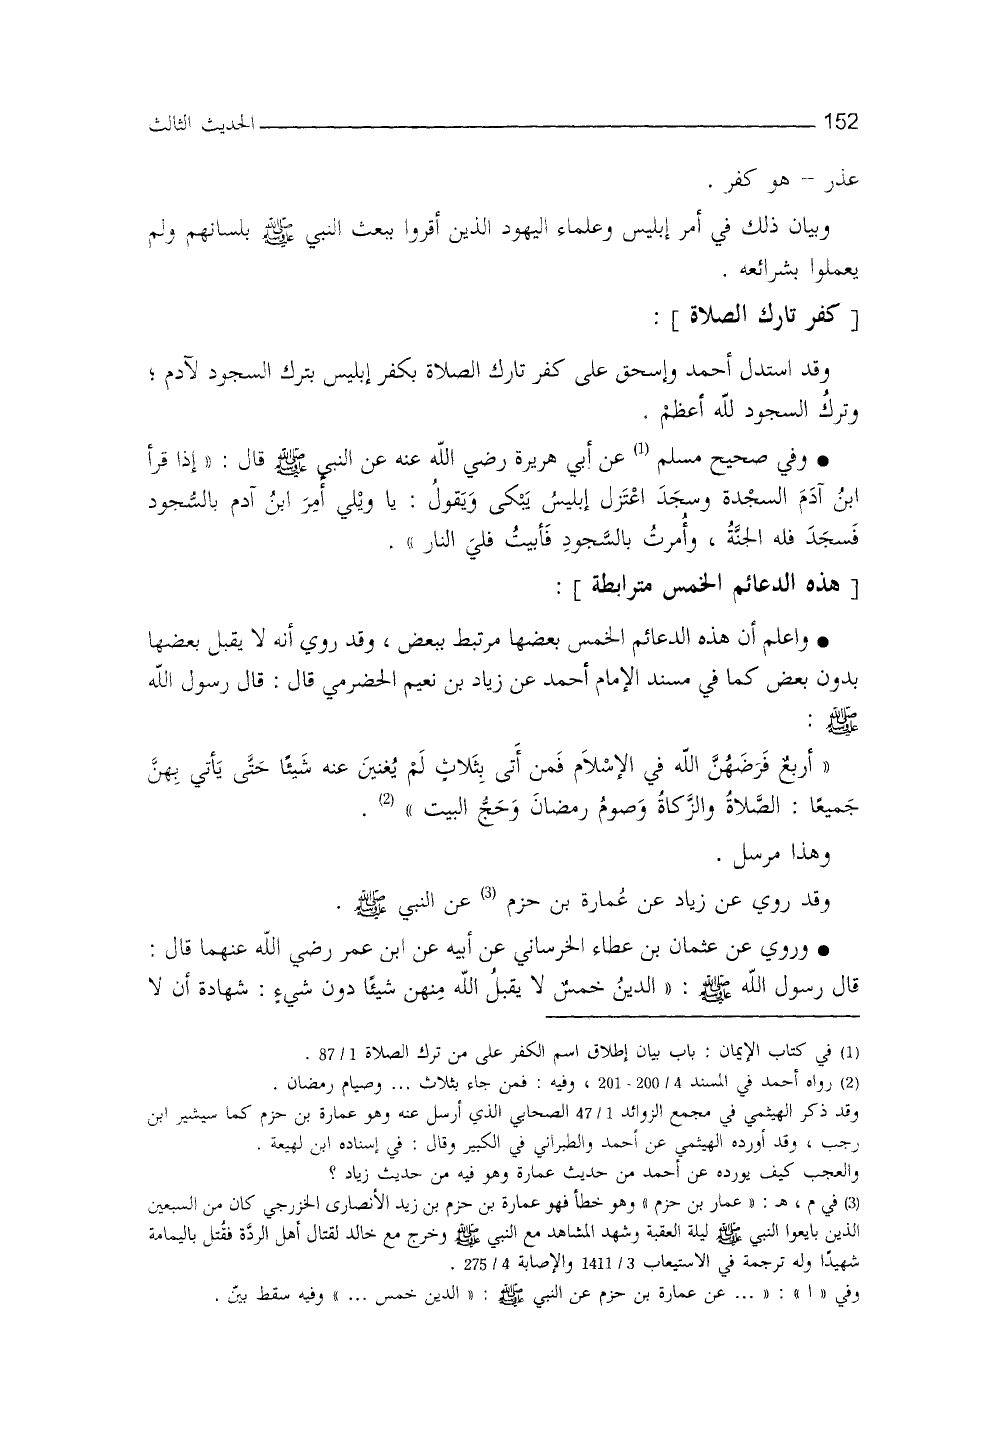 152 الحديث الثالث
عذر -- هو كفر .
وبيان ذلك في أمر إبليس وعلماء اليهود الذين أقروا ببعث النبي ﷺ بلسانهم ولم
يعملوا بشرائعه .
[ كفر تارك الصلاة ] :
وقد استدل أحمد وإسحق على كفر تارك الصلاة بكفر إبليس بترك السجود لآدم ؛
وتركُ السجود للّه أعظمْ .
● وفي صحيح مسلم (1) عن أبي هريرة رضي اللّه عنه عن النبي ﷺ قال : « إذا قرأ
ابنُ آدَمَ السجْدة وسجَدَ اعْتَزل إبليسُ يَبْكى وَيَقولُ : يا ويْلي أُمِرَ ابنُ آدم بالسُّجود
فَسجَدَ فله الجنَّةُ ، وأُمرتُ بالسَّجودِ فَأبيتُ فليَ النار » .
[ هذه الدعائم الخمس مترابطة ] :
● واعلم أن هذه الدعائم الخمس بعضها مرتبط ببعض ، وقد روي أنه لا يقبل بعضها
بدون بعض كما في مسند الإمام أحمد عن زياد بن نعيم الحضرمي قال : قال رسول اللّه
ﷺ :
« أربعٌ فَرَضَهُنَّ اللّه في الإسْلاَم فَمن أَتى بِثَلاثٍ لَمْ يُغنينَ عنه شَيئًا حَتَّى يَأتي بِهنَّ
جَميعًا : الصَّلاةُ والزَّكاةُ وَصومُ رمضانَ وَحَجُّ البيت » (2) .
وهذا مرسل .
وقد روي عن زياد عن عُمارة بن حزم (3) عن النبي ﷺ .
● وروي عن عثمان بن عطاء الخرساني عن أبيه عن ابن عمر رضي اللّه عنهما قال :
قال رسول اللّه ﷺ : « الدينُ خمسٌ لا يقبلُ اللّه مِنهن شيئًا دون شيءٍ : شهادة أن لا
(1) في كتاب الإيمان : باب بيان إطلاق اسم الكفر على من ترك الصلاة 1 / 87 .
(2) رواه أحمد في المسند 4 / 200 - 201 ، وفيه : فمن جاء بثلاث ... وصيام رمضان .
وقد ذكر الهيثمي في مجمع الزوائد 1 / 47 الصحابي الذي أرسل عنه وهو عمارة بن حزم كما سيشير ابن
رجب ، وقد أورده الهيثمي عن أحمد والطبراني في الكبير وقال : في إسناده ابن لهيعة .
والعجب كيف يورده عن أحمد من حديث عمارة وهو فيه من حديث زياد ؟
(3) في م ، هـ : « عمار بن حزم » وهو خطأ فهو عمارة بن حزم بن زيد الأنصارى الخزرجي كان من السبعين
الذين بايعوا النبي ﷺ ليلة العقبة وشهد المشاهد مع النبي ﷺ وخرج مع خالد لقتال أهل الردَّة فقُتل باليمامة
شهيدًا وله ترجمة في الاستيعاب 3 / 1411 والإصابة 4 / 275 .
وفي « ا » : « ... عن عمارة بن حزم عن النبي ﷺ : « الدين خمس ... » وفيه سقط بيّن .